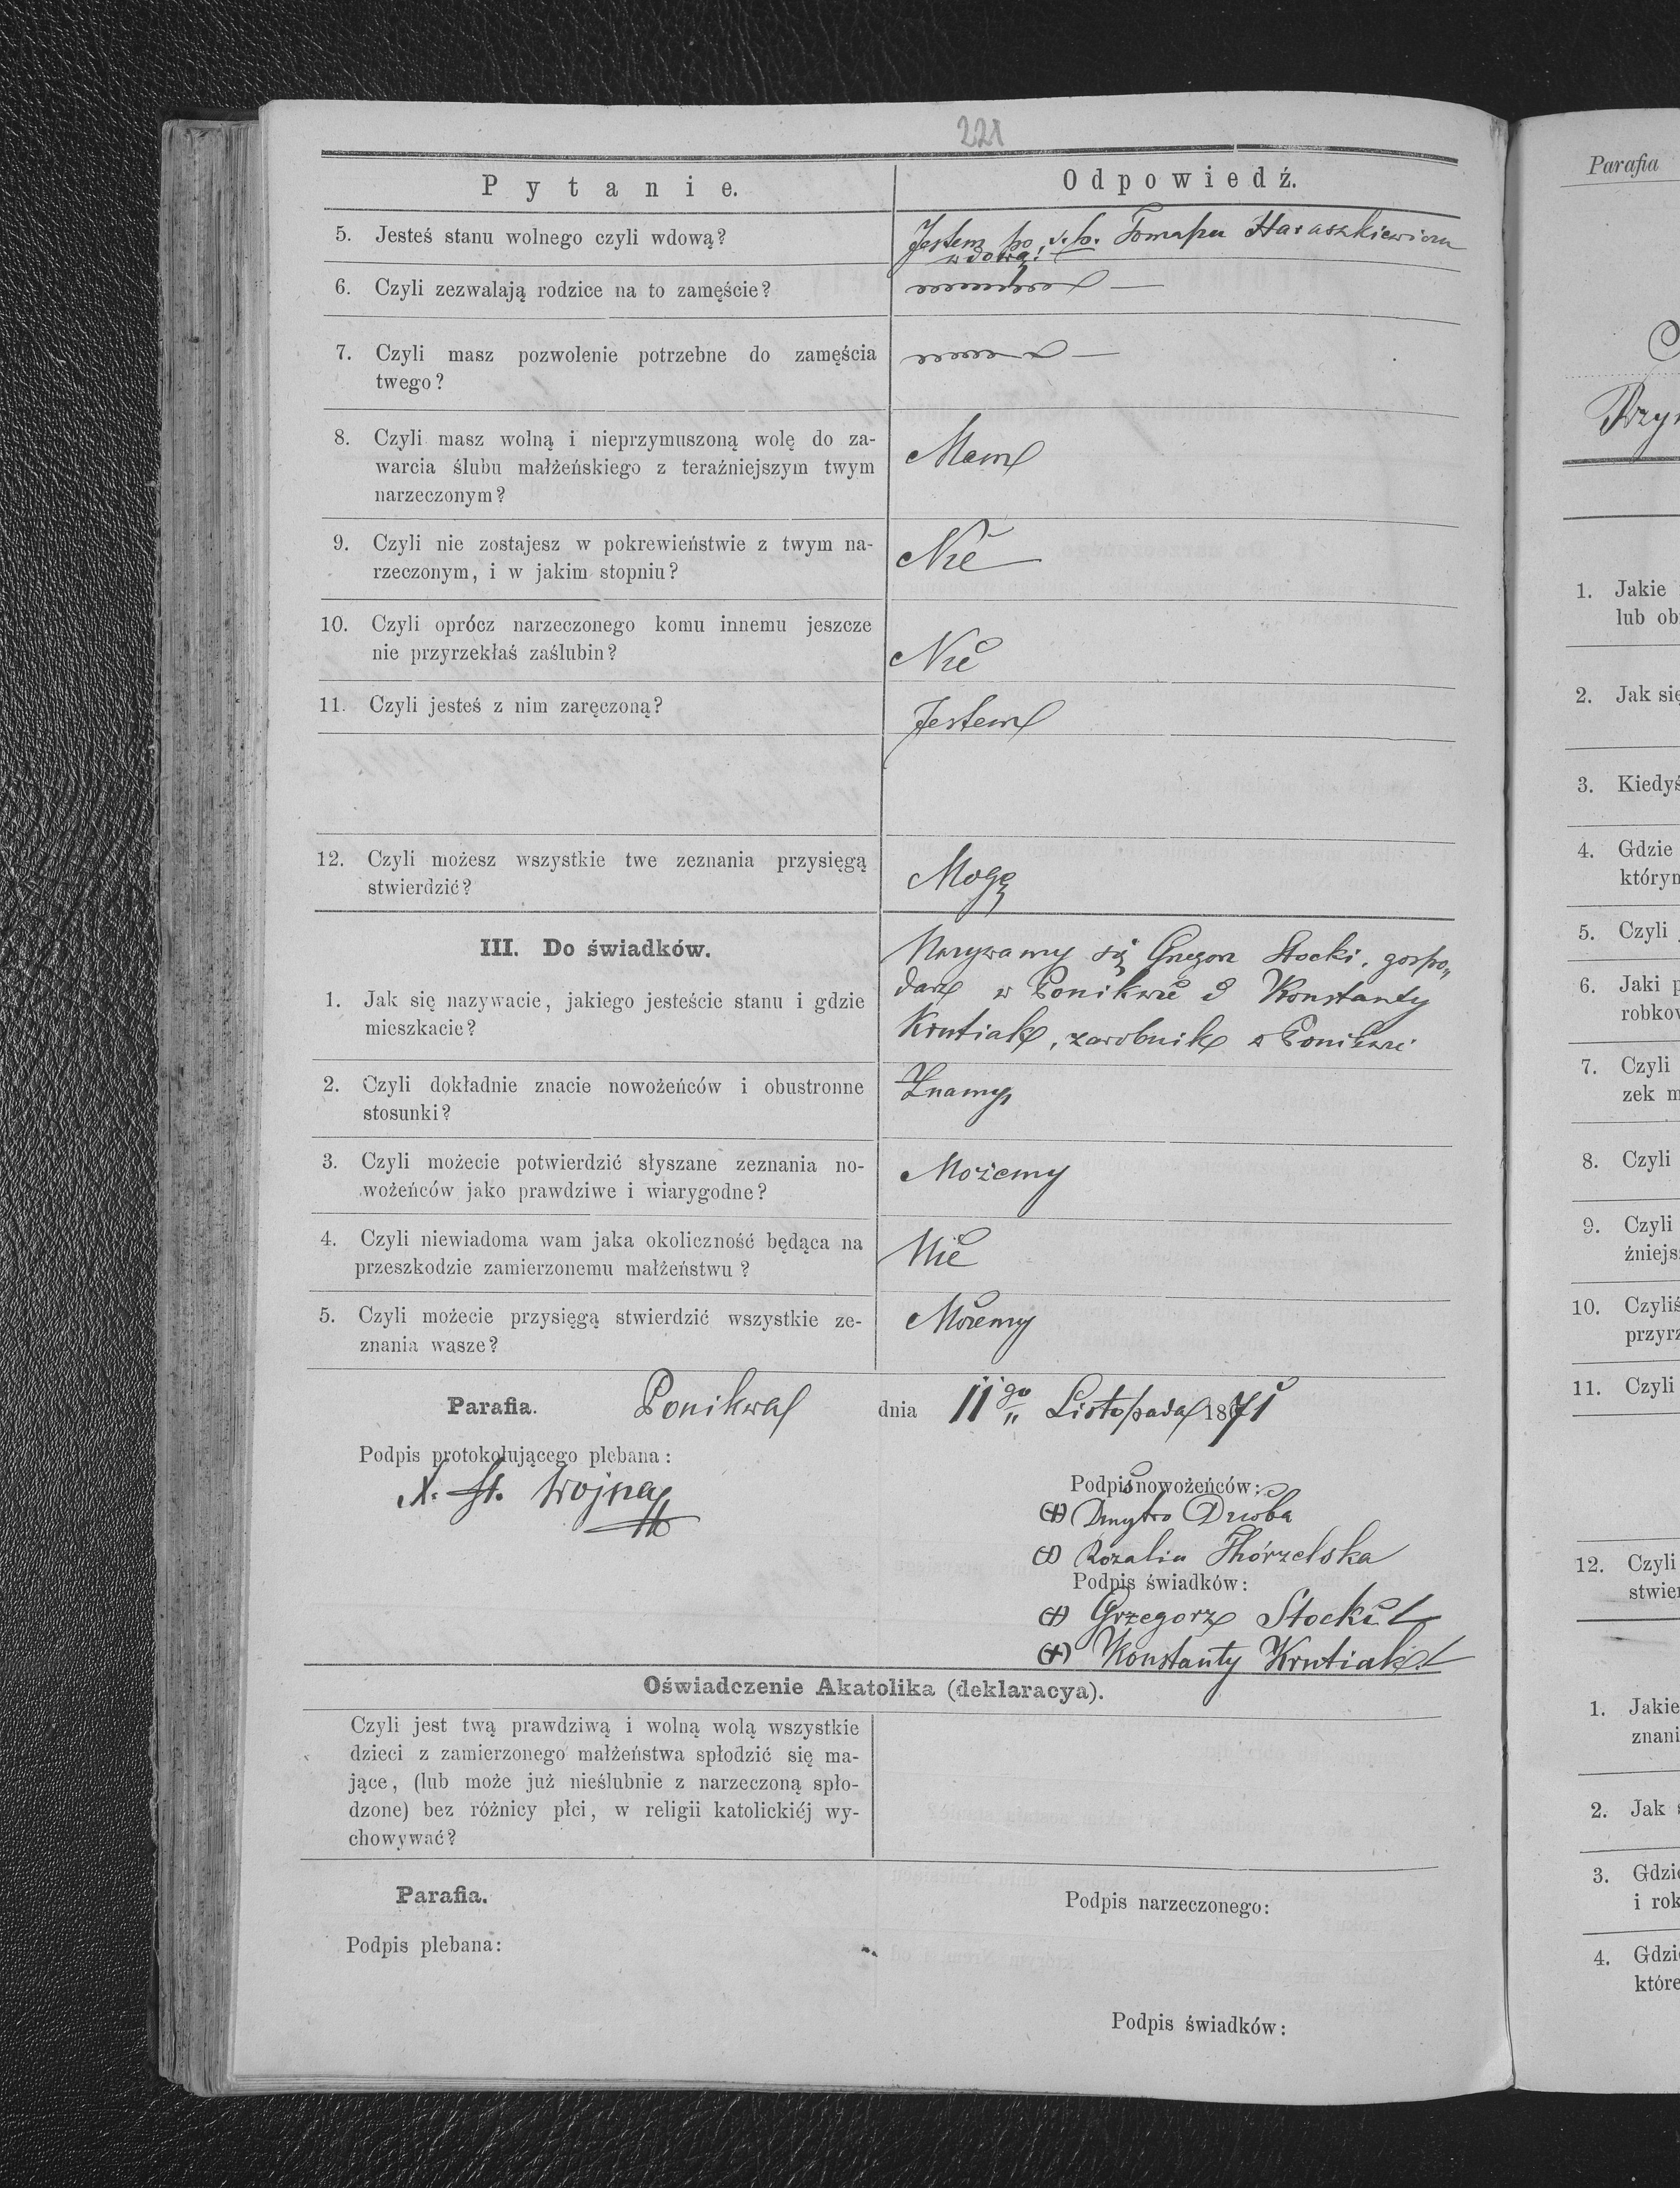 221
Pytanie.
Odpowiedź.
5. Jesteś stanu wolnego czyli wdową?
Jestem po ś.p. Tomaszu Haraszkiewiczu
wdową.
6. Czyli zezwalają rodzice na to zamęście?
7. Czyli masz pozwolenie potrzebne do zamęścia
twego?
8. Czyli masz wolną i nieprzymuszoną wolę do za-
warcia ślubu małżeńskiego z teraźniejszym twym
narzeczonym?
Mam
9. Czyli nie zostajesz w pokrewieństwie z twym na-
rzeczonym, i w jakim stopniu?
Nie
10. Czyli oprócz narzeczonego komu innemu jeszcze
nie przyrzekłaś zaślubin?
Nie
11. Czyli jesteś z nim zaręczoną?
Jestem
12. Czyli możesz wszystkie twe zeznania przysięgą
stwierdzić?
Mogę
III. Do świadków.
1. Jak się nazywacie, jakiego jesteście stanu i gdzie
mieszkacie?
Nazywamy się Grzegorz Stocki, gospo„
darz w Ponikwie i Konstanty
Krutiak, zarobnik w Ponikwie
2. Czyli dokładnie znacie nowożeńców i obustronne
stosunki?
Znamy
3. Czyli możecie potwierdzić słyszane zeznania no-
wożeńców jako prawdziwe i wiarygodne?
Możemy
4. Czyli niewiadoma wam jaka okoliczność będąca na
przeszkodzie zamierzonemu małżeństwu?
Nie
5. Czyli możecie przysięgą stwierdzić wszystkie ze-
znania wasze?
Możemy
Parafia. Ponikwa dnia 11go Listopada 1871
Podpis protokołującego plebana:
X. St. Wojna
Podpis nowożeńców:
(+) Dmytro Dzioba
(+) Rozalia
Podpis świadków:
(+) Grzegorz Stocki
(+) Konstanty Krutiak
Oświadczenie Akatolika (deklaracya).
Czyli jest twą prawdziwą i wolną wolą wszystkie
dzieci z zamierzonego małżeństwa spłodzić się ma-
jące, (lub może już nieślubnie z narzeczoną spło-
dzone) bez różnicy płci, w religii katolickiéj wy-
chowywać?
Parafia.
Podpis narzeczonego:
Podpis plebana:
Podpis świadków:
Parafia
Przy
1. Jakie
lub ob
2. Jak się
3. Kiedyś
4. Gdzie
którym
5. Czyli
6. Jaki p
robkow
7. Czyli
zek m
8. Czyli
9. Czyli
źniejs
10. Czyliś
przyrz
11. Czyli
12. Czyli
stwier
1. Jakie
znani
2. Jak
3. Gdzie
i rok
4. Gdzie
które